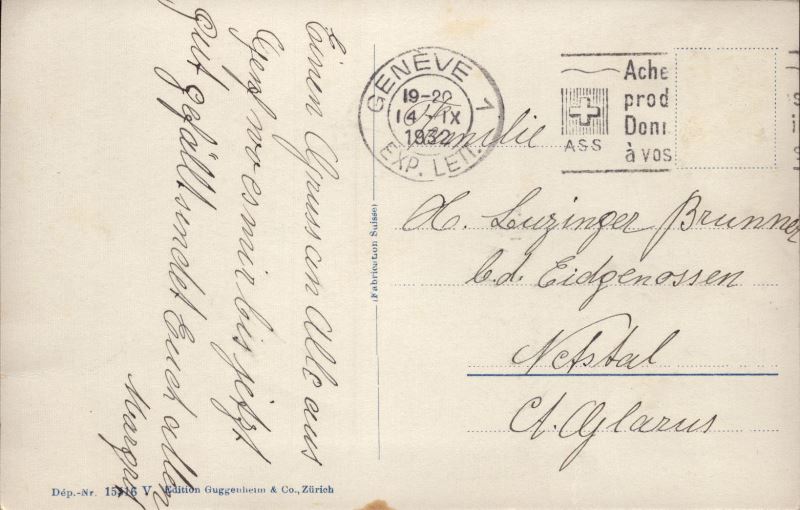 Einen Gruss an Alle aus
Genf wo es mir bis jetzt
gut gefällt sendet Euch allen
Margrit
(Fabrication Suisse)
GENÈVE 1
19-20
14 · IX
1932
EXP. LETT.
ASS
Ache
prod
Don
à vos
Familie
H. Luzinger Brunner
b.d. Eidgenossen
Netstal
Ct. Glarus
Dép.-Nr. 15 16 V. Edition Guggenheim & Co., Zürich